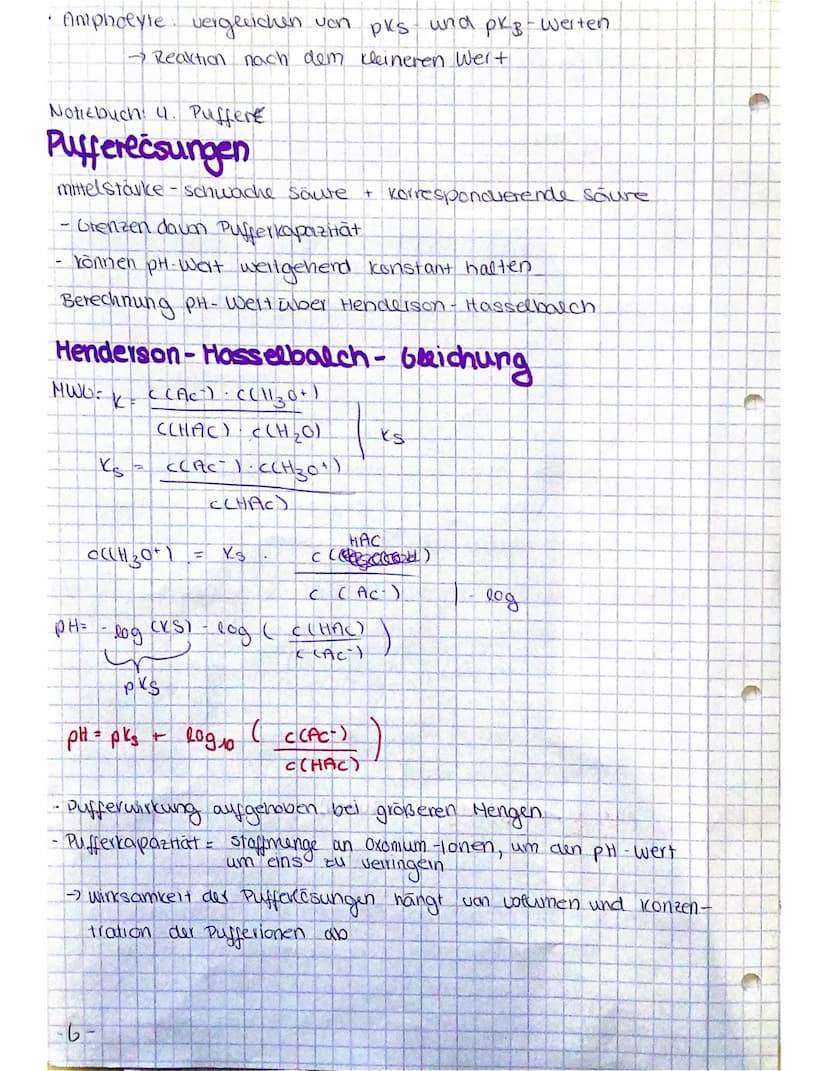 · Ampholyte: vergleichen von pKs- und pKB-Werten
→ Reaktion nach dem kleineren Wert
Notizbuch: 4. Puffer
Pufferlösungen
mittelstarke - schwache Säure + korrespondierende Säure
- Grenzen davon Pufferkapazität
- können pH-Wert weitgehend konstant halten
Berechnung pH-Wert über Henderson-Hasselbalch
Henderson-Hasselbalch-Gleichung
MWG: K = c(Ac⁻) · c(H₃O⁺)
c(HAc) · c(H₂O) | Ks
Ks = c(Ac⁻) · c(H₃O⁺)
c(HAc)
HAC
c(H₃O⁺) = Ks · c( )
c (Ac⁻) | - log
pH = - log (KS) - log ( c(HAc)
c(Ac⁻) )
pKs
pH = pKs + log₁₀ ( c(Ac⁻)
c(HAc) )
· Pufferwirkung aufgehoben bei größeren Mengen
- Pufferkapazität = Stoffmenge an Oxonium-Ionen, um den pH-Wert
um eins zu verringern
→ Wirksamkeit der Pufferlösungen hängt von Volumen und Konzen-
tration der Pufferionen ab
-6-